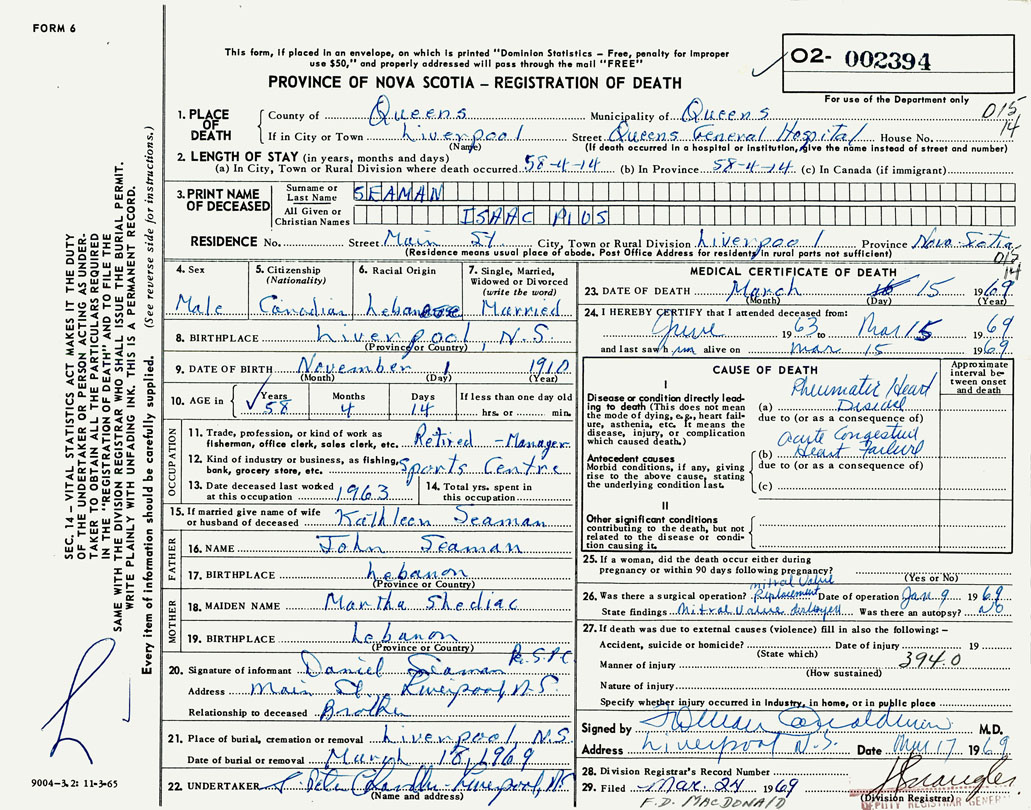 FORM 6
This form, if placed in an envelope, on which is printed "Dominion Statistics – Free, penalty for improper
use $50," and properly addressed will pass through the mail "FREE"
O2- 002394
PROVINCE OF NOVA SCOTIA – REGISTRATION OF DEATH
For use of the Department only
D15
14
1. PLACE OF DEATH
County of Queens Municipality of Queens
If in City or Town Liverpool Street Queens General Hospital House No.
(Name) (If death occurred in a hospital or institution, give the name instead of street and number)
2. LENGTH OF STAY (in years, months and days)
(a) In City, Town or Rural Division where death occurred 58-4-14 (b) In Province 58-4-14 (c) In Canada (if immigrant)
3. PRINT NAME OF DECEASED
Surname or Last Name SEAMAN
All Given or Christian Names ISAAC PIUS
RESIDENCE No. Street Main St City, Town or Rural Division Liverpool Province Nova Scotia
(Residence means usual place of abode. Post Office Address for residents in rural parts not sufficient)
D15
14
4. Sex
Male
5. Citizenship
(Nationality)
Canadian
6. Racial Origin
Lebanese
7. Single, Married,
Widowed or Divorced
(write the word)
Married
8. BIRTHPLACE Liverpool, N.S.
(Province or Country)
9. DATE OF BIRTH November 1 1910
(Month) (Day) (Year)
10. AGE in
Years 58
Months 4
Days 14
If less than one day old
hrs. or min.
OCCUPATION
11. Trade, profession, or kind of work as
fisherman, office clerk, sales clerk, etc. Retired - Manager
12. Kind of industry or business, as fishing,
bank, grocery store, etc. Sports Centre
13. Date deceased last worked
at this occupation 1963
14. Total yrs. spent in
this occupation
15. If married give name of wife
or husband of deceased Kathleen Seaman
FATHER
16. NAME John Seaman
17. BIRTHPLACE Lebanon
(Province or Country)
MOTHER
18. MAIDEN NAME Martha Shediac
19. BIRTHPLACE Lebanon
(Province or Country)
20. Signature of informant Daniel Seaman
Address Main St., Liverpool, N.S.
Relationship to deceased Brother
21. Place of burial, cremation or removal Liverpool N.S.
Date of burial or removal March 18, 1969
22. UNDERTAKER Chandler - Liverpool, NS
(Name and address)
MEDICAL CERTIFICATE OF DEATH
23. DATE OF DEATH March 15 1969
(Month) (Day) (Year)
24. I HEREBY CERTIFY that I attended deceased from:
June 1963 Mar 15 1969
and last saw him alive on Mar 15 1969.
CAUSE OF DEATH
Approximate
interval be-
tween onset
and death
I
Disease or condition directly lead-
ing to death (This does not mean
the mode of dying, e.g., heart fail-
ure, asthenia, etc. It means the
disease, injury, or complication
which caused death.)
Rheumatic Heart
(a) Disease
due to (or as a consequence of)
Antecedent causes
Morbid conditions, if any, giving
rise to the above cause, stating
the underlying condition last.
Acute Congestive
(b) Heart Failure
due to (or as a consequence of)
(c)
II
Other significant conditions
contributing to the death, but not
related to the disease or condi-
tion causing it.
25. If a woman, did the death occur either during
pregnancy or within 90 days following pregnancy?
(Yes or No)
Mitral Valve
26. Was there a surgical operation? Replacement Date of operation Jan 9 1969
State findings Mitral Valve Was there an autopsy? No
27. If death was due to external causes (violence) fill in also the following: –
Accident, suicide or homicide? Date of injury 19
(State which)
Manner of injury 394.0
(How sustained)
Nature of injury
Specify whether injury occurred in Industry, in home, or in public place
Signed by M.D.
Address Liverpool N.S. Date Mar 17 1969
28. Division Registrar's Record Number
29. Filed Mar. 24 1969
(Division Registrar)
F.D. MacDONALD
DEPUTY REGISTRAR GENERAL
SEC. 14 – VITAL STATISTICS ACT MAKES IT THE DUTY
OF THE UNDERTAKER OR PERSON ACTING AS UNDER-
TAKER TO OBTAIN ALL THE PARTICULARS REQUIRED
IN THE "REGISTRATION OF DEATH" AND TO FILE THE
SAME WITH THE DIVISION REGISTRAR WHO SHALL ISSUE THE BURIAL PERMIT.
WRITE PLAINLY WITH UNFADING INK. THIS IS A PERMANENT RECORD.
Every item of information should be carefully supplied. (See reverse side for instructions.)
9004-3.2: 11-3-65